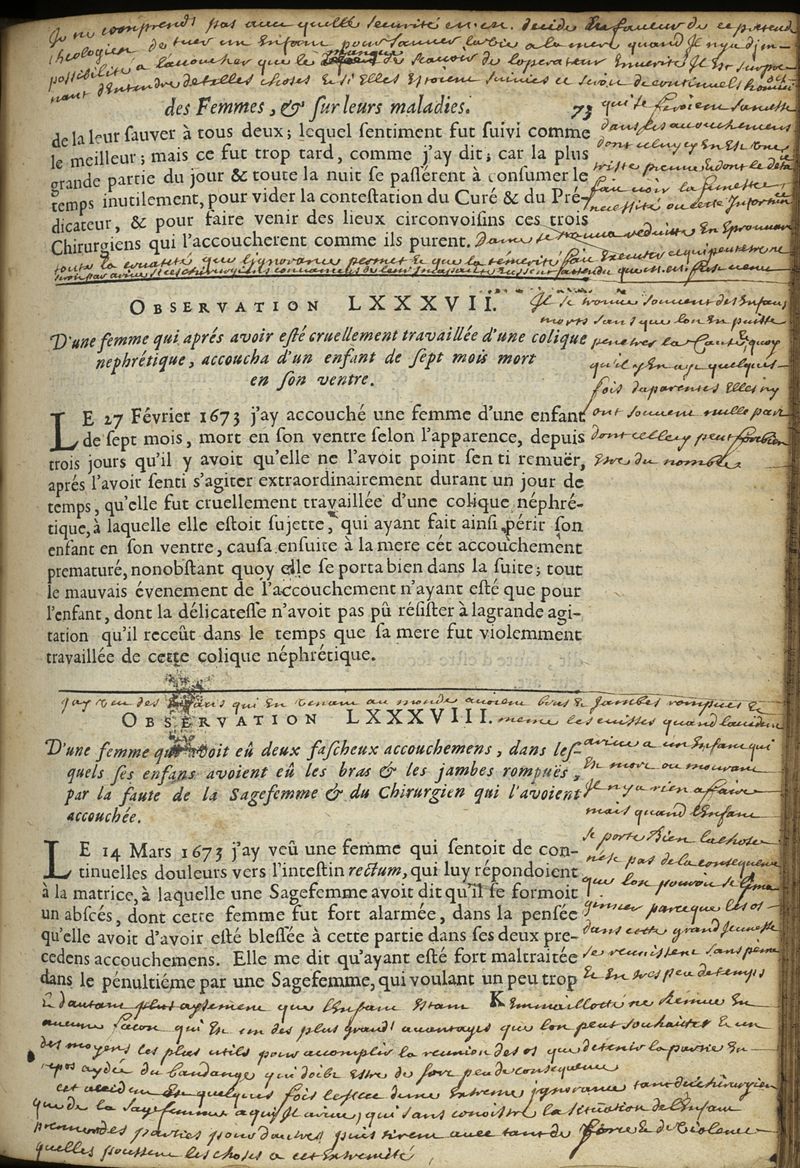 Je ne comprends pas avec quelle securité on en decide en faveur de ce pretendu
theologien de tuer un Enfant pour sauver la vie a la mere quand Il n'y a d'im-
possibilité a l'accoucher que le manque de scavoir de l'operateur
nant d'Entendre de telles choses et si Elles Estoient suivies ce seroit de continuels
des Femmes, & ſur leurs maladies. 73
de la leur ſauver à tous deux; lequel ſentiment fut ſuivi comme
le meilleur; mais ce fut trop tard, comme j'ay dit; car la plus
grande partie du jour & toute la nuit ſe paſſérent à conſumer le
temps inutilement, pour vider la conteſtation du Curé & du Pré-
dicateur, & pour faire venir des lieux circonvoiſins ces trois
Chirurgiens qui l'accoucherent comme ils purent.
qui se feroient sans cesse
dans les accouchemens
dont celuy cy En Est une
triste preuve
fait voir la funeste
necessité ou cette Infortunée
Dame se trouva reduitte En Eprouvant
toute la cruauté que l'ignorance permet et que la temerité fait Executer
OBSERVATION LXXXVII.
D'une femme qui aprés avoir eſté cruellement travaillée d'une colique
nephrétique, accoucha d'un enfant de ſept mois mort
en ſon ventre.
LE 27 Février 1673 j'ay accouché une femme d'une enfant
de ſept mois, mort en ſon ventre ſelon l'apparence, depuis
trois jours qu'il y avoit qu'elle ne l'avoit point ſenti remuër,
aprés l'avoir ſenti s'agiter extraordinairement durant un jour de
temps, qu'elle fut cruellement travaillée d'une colique néphré-
tique, à laquelle elle eſtoit ſujette, qui ayant fait ainſi périr ſon
enfant en ſon ventre, cauſa enſuite à la mere cét accouchement
prematuré, nonobſtant quoy elle ſe porta bien dans la ſuite; tout
le mauvais évenement de l'accouchement n'ayant eſté que pour
l'enfant, dont la délicateſſe n'avoit pas pû réſiſter à la grande agi-
tation qu'il receût dans le temps que ſa mere fut violemment
travaillée de cette colique néphrétique.
Il se trouve souvent des Enfans
morts sans que l'on En puisse
penetrer la Cause, quoy
qu'il y En aye quelques
fois d'aparentes Elles n'y
ont souvent nulle part
dont celle cy peut fort bien
Estre du nombre
OBSERVATION LXXXVIII.
D'une femme qui avoit eû deux faſcheux accouchemens, dans leſ-
quels ſes enfans avoient eû les bras & les jambes rompuës,
par la faute de la Sagefemme & du Chirurgien qui l'avoient
accouchée.
LE 14 Mars 1673 j'ay veû une femme qui ſentoit de con-
tinuelles douleurs vers l'inteſtin rectum, qui luy répondoient
à la matrice, à laquelle une Sagefemme avoit dit qu'il ſe formoit
un abſcés, dont cette femme fut fort alarmée, dans la penſée
qu'elle avoit d'avoir eſté bleſſée à cette partie dans ſes deux pre-
cedens accouchemens. Elle me dit qu'ayant eſté fort maltraitée
dans le pénultiéme par une Sagefemme, qui voulant un peu trop
K
j'ay veu des Enfans qui En venant au monde avoient bras et Jambes rompues et
meme les cuisses quand l'accident
arive a un Enfant qui
Est mort ou mourant
Il n'y a rien a faire
mais quand l'Enfant
se porte Bien la chose
n'est pas de la consequence
que l'on pouroit se Ima-
geiner parce que les os
dans cette grand Jeunesse
se reunissent sans peine
et En tres peu de temps
et d'autant plus aysement que l'Enfant Estant Emmaillotté ne Remue En
aucune facon qui Est un des plus grands avantages que l'on peut souhaiter et un
des moyens les plus utils pour accomplir la reunion des os que de tenir la partie En
repos aydée du bandage qui doibt Estre de fort peu de consequence
cet accident Est quelques fois l'effect d'une Extreme ignorance tant du chirurgien
que de la sagefemme a qui Il arive, qui sans conoistre la situation de l'Enfant
prennent des parties pour d'autres puis tirent avec tant de force et de violence
qu'elles poussent les choses a cet Extremité